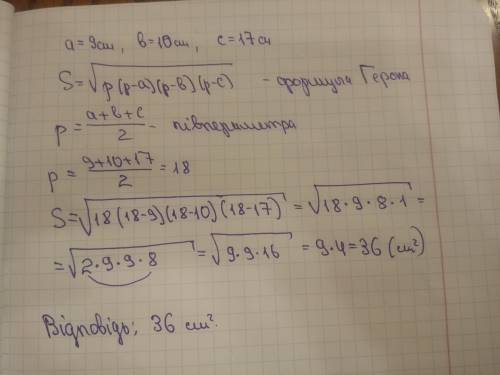 a = 9см, в = 10см, с = 17см
S = √p(p-a)(p-в)(p-c) - формула Герона
p = a+в+c/2 - півпериметра
p = 9+10+17/2 = 18
S = √18(18-9)(18-10)(18-17) = √18·9·8·1 =
= √2·9·9·8 = √9·9·16 = 9·4 = 36 (см²)
Відповідь: 36 см².